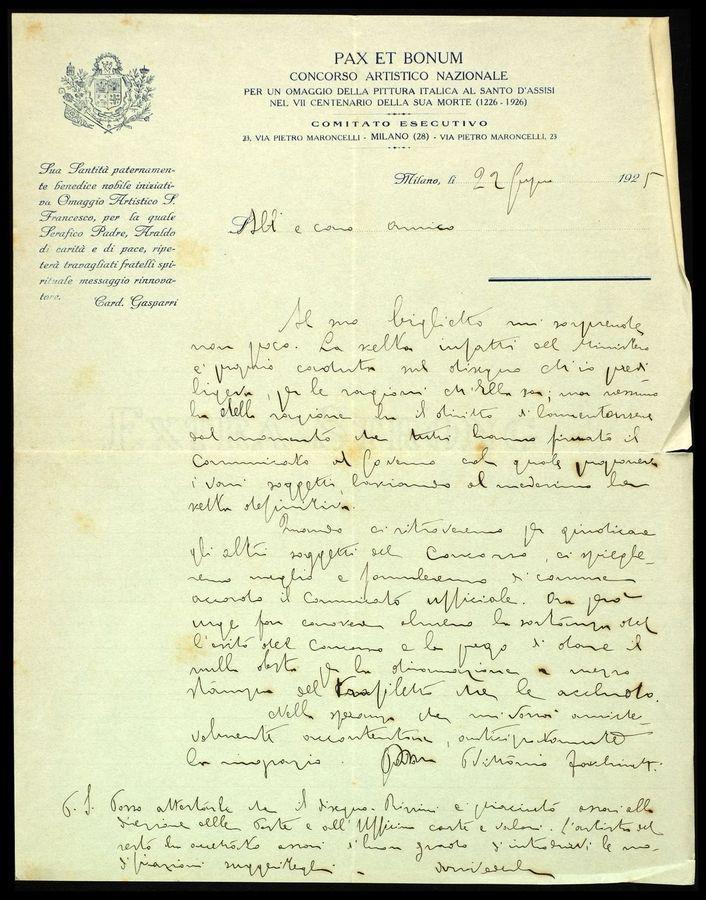 PAX ET BONUM
CONCORSO ARTISTICO NAZIONALE
PER UN OMAGGIO DELLA PITTURA ITALICA AL SANTO D'ASSISI
NEL VII CENTENARIO DELLA SUA MORTE (1226 - 1926)
COMITATO ESECUTIVO
23, VIA PIETRO MARONCELLI - MILANO (28) - VIA PIETRO MARONCELLI, 23
Sua Santità paternamen-
te benedice nobile iniziati-
va Omaggio Artistico S.
Francesco, per la quale
Serafico Padre, Araldo
di carità e di pace, ripe-
terà travagliati fratelli spi-
rituale messaggio rinnova-
tore.
Card. Gasparri
Milano, li 22 1925
e caro amico
Il suo biglietto mi sorprende
non poco. La scelta infatti del Ministero
è proprio caduta sul disegno ch'io predi
ligeva, per le ragioni ch'Ella sa; ma nessuno
ha della ragione ha il diritto di lamentarsene
dal momento che tutti hanno firmato il
Comunicato al Governo col quale proponeva
i vari soggetti, lasciando al medesimo la
scelta definitiva.
Quando ci ritroveremo per giudicare
gli altri soggetti del Concorso, ci spieghe-
remo meglio e formuleremo di comune
accordo il Comunicato ufficiale. Ora però
urge far conoscere almeno la sostanza del
l'esito del Concorso e la prego di dare il
nulla osta per la diramazione a mezzo
stampa del trafiletto che le accludo.
Nella speranza che mi vorrà amiche-
volmente accontentare, anticipatamente
la ringrazio. Vittorino
P. S. Posso attestarle che il disegno Rizzini è piaciuto assai alla
direzione delle Poste e all'Officina carte e valori. L'artista del
resto ha accettato assai di buon grado d'introdurvi le mo-
dificazioni suggeritegli.